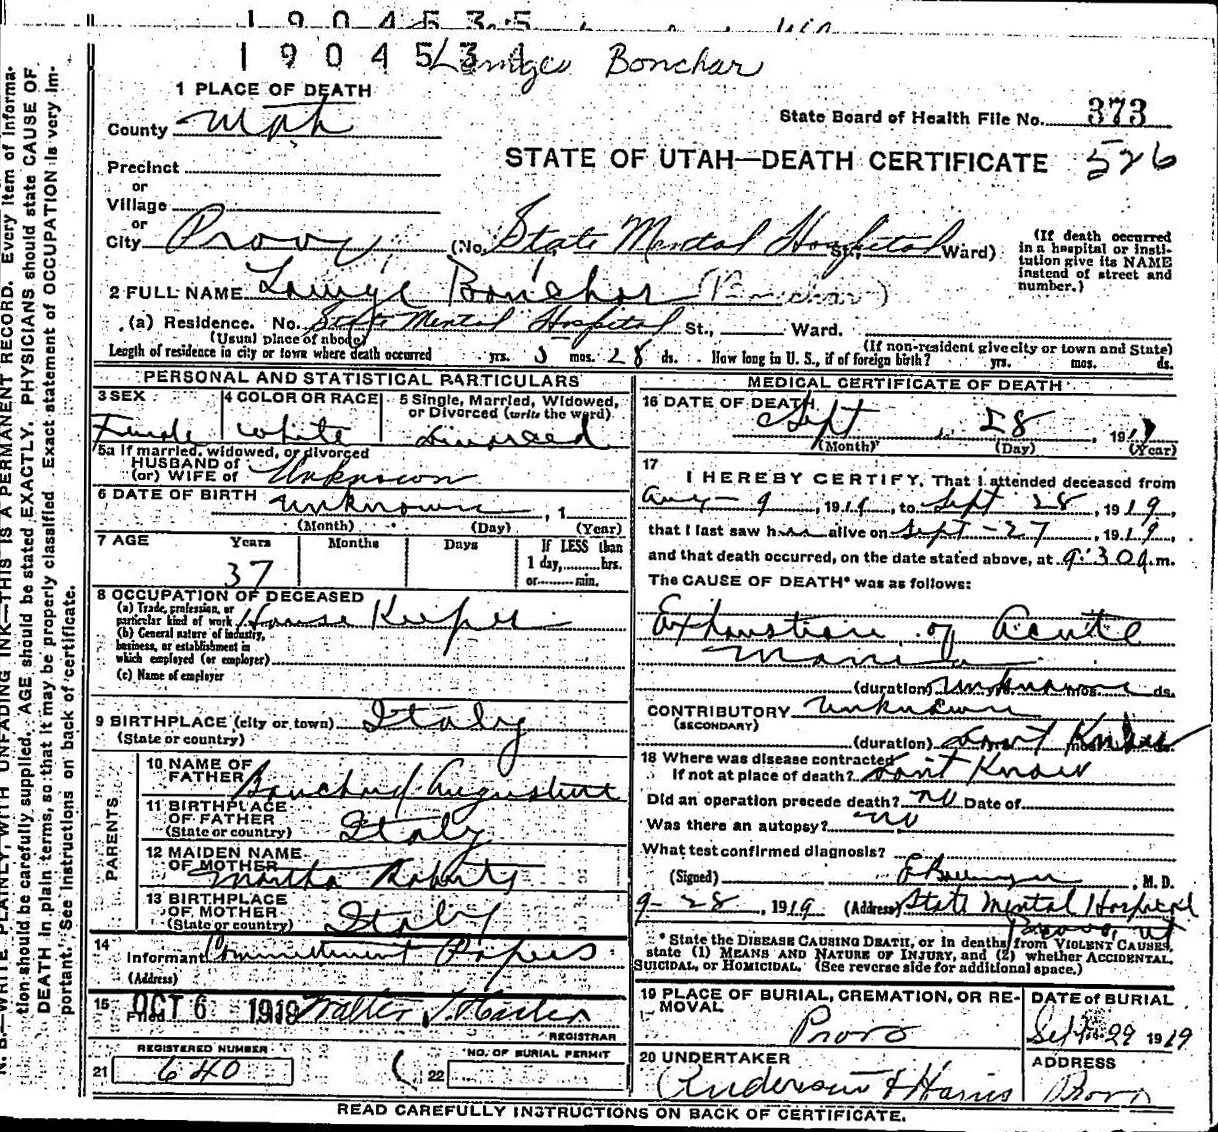 1904535
1904531 Bonchar
1 PLACE OF DEATH
County Utah
State Board of Health File No. 373
STATE OF UTAH—DEATH CERTIFICATE 526
Precinct
or
Village
or
City Provo (No. State Mental Hospital St., Ward)
(If death occurred in a hospital or institution give its NAME instead of street and number.)
2 FULL NAME Bonchar (Bonchar)
(a) Residence. No. State Mental Hospital St., Ward.
(Usual place of abode) (If non-resident give city or town and State)
Length of residence in city or town where death occurred yrs. 5 mos. 28 ds. How long in U. S., if of foreign birth? yrs. mos. ds.
PERSONAL AND STATISTICAL PARTICULARS
3 SEX 4 COLOR OR RACE 5 Single, Married, Widowed, or Divorced (write the word)
Female White Divorced
5a If married, widowed, or divorced
HUSBAND of
(or) WIFE of Unknown
6 DATE OF BIRTH Unknown, 1
(Month) (Day) (Year)
7 AGE Years Months Days If LESS than 1 day, hrs. or min.
37
8 OCCUPATION OF DECEASED
(a) Trade, profession, or particular kind of work House Keeper
(b) General nature of industry, business, or establishment in which employed (or employer)
(c) Name of employer
9 BIRTHPLACE (city or town) Italy
(State or country)
PARENTS
10 NAME OF FATHER
11 BIRTHPLACE OF FATHER (State or country) Italy
12 MAIDEN NAME OF MOTHER Martha
13 BIRTHPLACE OF MOTHER (State or country) Italy
14 Informant Commitment Papers
(Address)
15 OCT 6 1919 Walter
REGISTRAR
REGISTERED NUMBER
21 640
NO. OF BURIAL PERMIT
22
MEDICAL CERTIFICATE OF DEATH
16 DATE OF DEATH
Sept 28, 1919
(Month) (Day) (Year)
17 I HEREBY CERTIFY, That I attended deceased from
Aug - 9, 1919, to Sept 28, 1919,
that I last saw her alive on Sept - 27, 1919,
and that death occurred, on the date stated above, at 9:30 a.m.
The CAUSE OF DEATH* was as follows:
Exhaustion of Acute
Mania
(duration) Unknown mos. ds.
CONTRIBUTORY Unknown
(SECONDARY)
(duration) Dont Know
18 Where was disease contracted
if not at place of death? Dont Know
Did an operation precede death? No Date of
Was there an autopsy? No
What test confirmed diagnosis?
(Signed) , M. D.
9-28, 1919 (Address) State Mental Hospital
Provo, Ut
* State the DISEASE CAUSING DEATH, or in deaths from VIOLENT CAUSES, state (1) MEANS AND NATURE OF INJURY, and (2) whether ACCIDENTAL, SUICIDAL, or HOMICIDAL. (See reverse side for additional space.)
19 PLACE OF BURIAL, CREMATION, OR REMOVAL DATE of BURIAL
Provo Sept 29 1919
20 UNDERTAKER ADDRESS
Anderson & Harris Provo
READ CAREFULLY INSTRUCTIONS ON BACK OF CERTIFICATE.
N. B.—WRITE PLAINLY, WITH UNFADING INK—THIS IS A PERMANENT RECORD. Every item of information should be carefully supplied. AGE should be stated EXACTLY. PHYSICIANS should state CAUSE OF DEATH in plain terms, so that it may be properly classified. Exact statement of OCCUPATION is very important. See instructions on back of certificate.